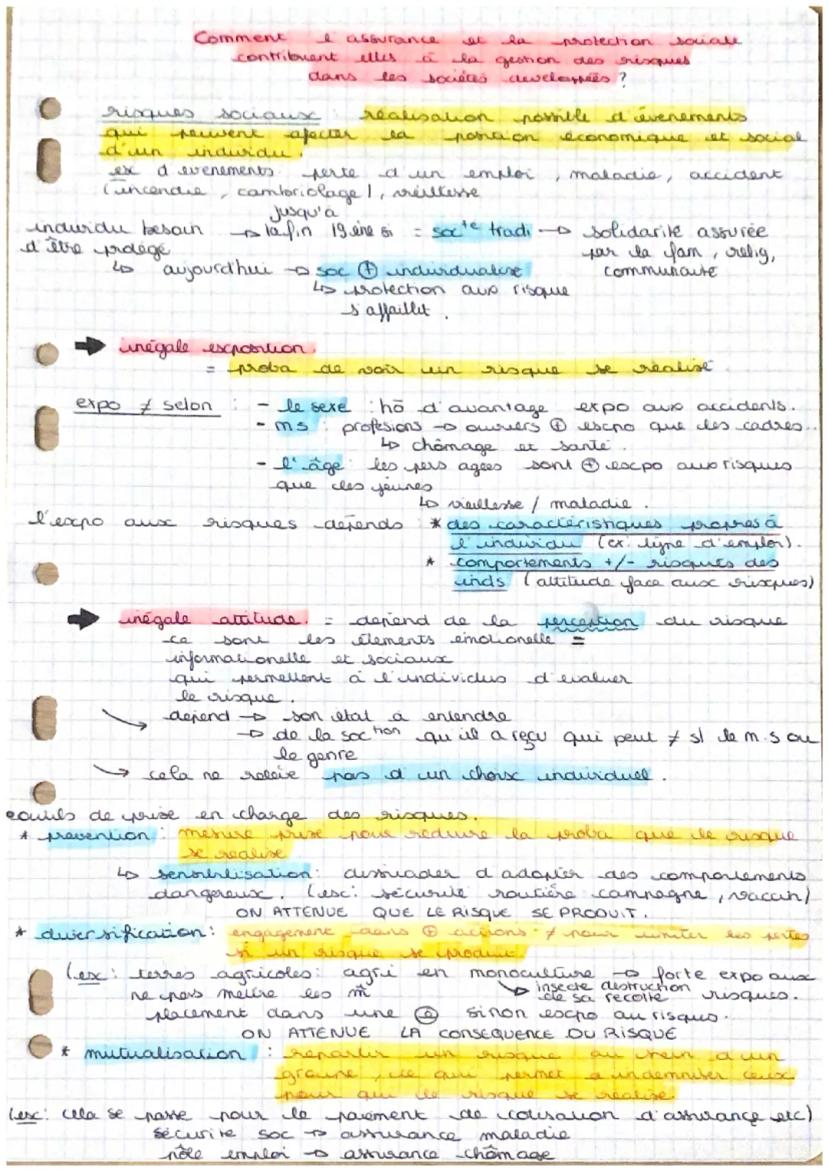 Comment l assurance et la protection sociale
contribuent elles à la gestion des risques
dans les sociétés developpées ?
risques sociaux : réalisation possible d'évenements
qui peuvent afecter la position économique et social
d'un individu.
ex d'evenements perte d'un emploi, maladie, accident
(incendie, cambriolage), vieillesse
individu besoin d'être protégé → jusqu'à la fin 19 ème si = soc^té tradi → solidarité assurée
par la fam, relig,
communauté
↳ aujourd'hui → soc ⊕ individualisé
↳ protection aux risque
s'affaiblit.
→ inégale exposition.
= proba de voir un risque se réalisé
expo ≠ selon : - le sexe : hō d'avantage expo aux accidents.
- ms : profesions → ouvriers ⊕ expo que les cadres..
↳ chômage et santé.
- l'âge : les pers agées sont ⊕ expo aux risques
que les jeunes
↳ vieillesse / maladie.
l'expo aux risques dépends : * des caractéristiques propres à
l'individu (ex: type d'emploi).
* comportements +/- risqués des
inds (attitude face aux risques)
→ inégale attitude. = depend de la perception du risque
ce sont les élements émotionelle =
informationelle et sociaux
qui permettent à l'individus d'evaluer
le risque.
→ depend → son état à entendre
→ de la soc^tion qu'il a reçu qui peut ≠ sl le m.s ou
le genre
→ cela ne relève pas d'un choix individuel.
outils de prise en charge des risques.
* prevention : mesure prise pour reduire la proba que le risque
se realise
↳ sensibilisation : dissuader d'adopter des comportements
dangereux. (ex: sécurité routière campagne, vaccin)
ON ATTENUE QUE LE RISQUE SE PRODUIT.
* diversification : engagement dans ⊕ actions ≠ pour limiter les pertes
si un risque se produit.
(ex : terres agricoles : agri en monoculture → forte expo aux
risques.
↘ insecte destruction
de sa recolte
ne pas mettre les m̂
placement dans une sinon expo au risques.
ON ATTENUE LA CONSEQUENCE DU RISQUE
* mutualisation : repartir un risque au sein d'un
groupe, ce qui permet d'indemniser ceux
pour qui le risque se réalise.
(ex: cela se passe pour le paiement de cotisation d'assurance etc)
sécurité soc → assurance maladie
pôle emploi → assurance chômage